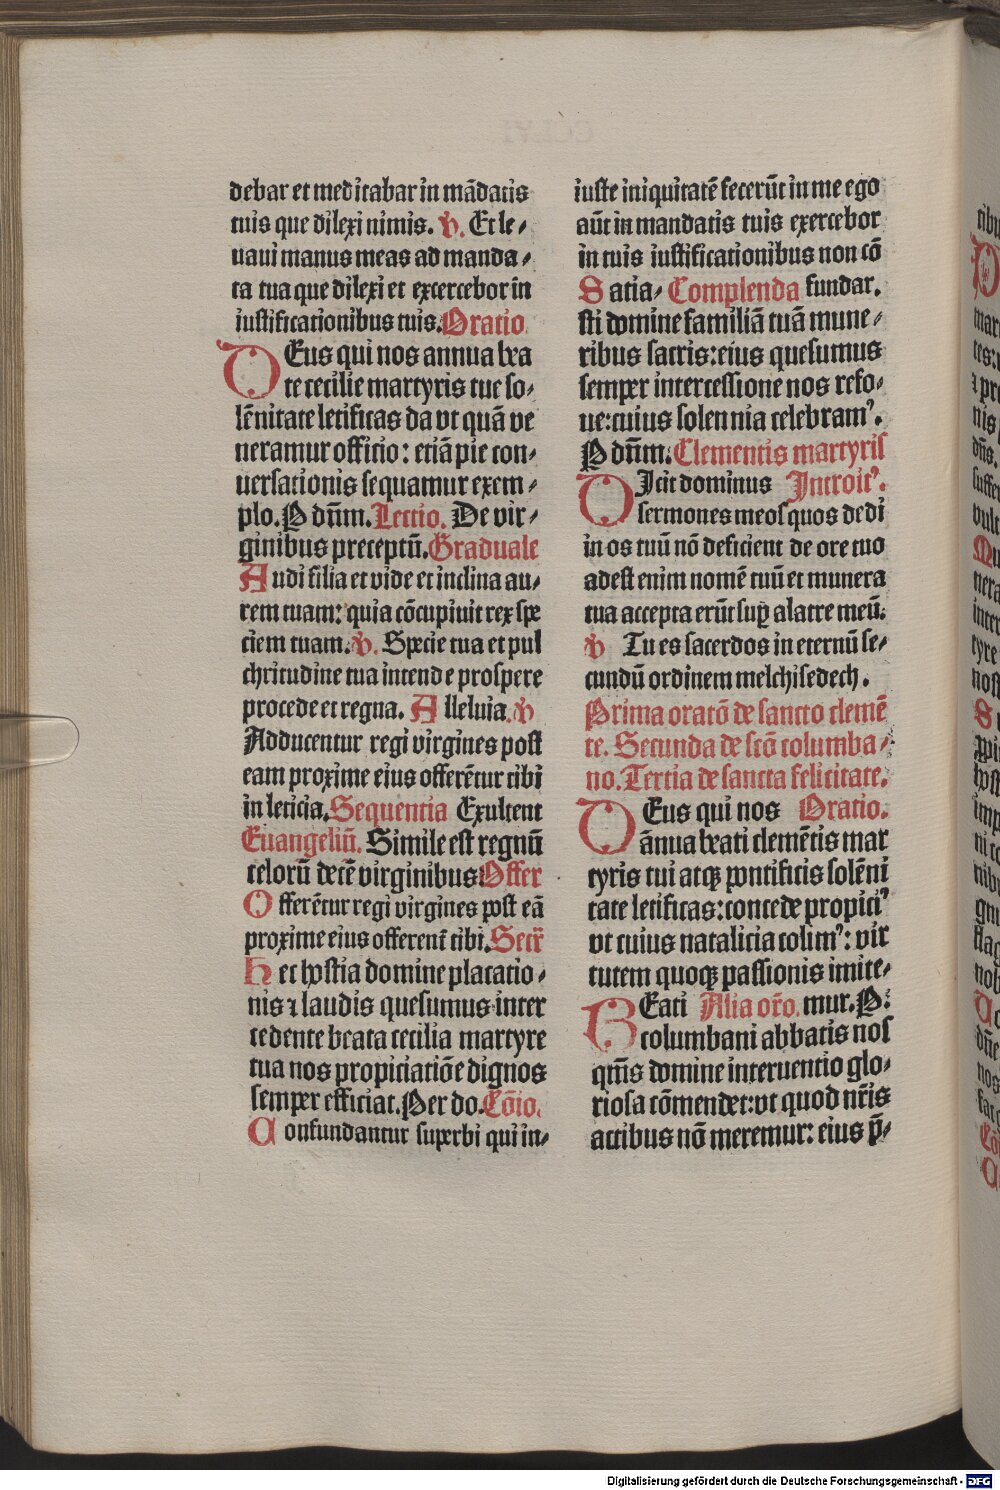 debar et meditabar in mādatis
tuis que dilexi nimis. v. Et le⸗
uaui manus meas ad manda⸗
ta tua que dilexi et excercebor in
iustificationibus tuis. Oratio
DEus qui nos annua bea
te cecilie martyris tue so⸗
lēnitate letificas da vt quā ve
neramur officio: etiā pie con⸗
uersationis sequamur exem⸗
plo. P dn̄m. Lectio. De vir⸗
ginibus preceptū. Graduale
Audi filia et vide et inclina au⸗
rem tuam: quia cōcupiuit rex spe
ciem tuam. v. Specie tua et pul
chritudine tua intende prospere
procede et regna. Alleluia. v
Adducentur regi virgines post
eam proxime eius offerētur tibi
in leticia. Sequentia Exultent
Euangeliū. Simile est regnū
celorū decē virginibus Offer
Offerētur regi virgines post eā
proxime eius offerent̄ tibi. Secr̄
Hec hostia domine placatio⸗
nis ⁊ laudis quesumus inter
cedente beata cecilia martyre
tua nos propiciatiōe dignos
semper efficiat. Per do. Cōio.
Confundantur superbi qui in⸗
iuste iniquitatē fecerūt in me ego
aūt in mandatis tuis exercebor
in tuis iustificationibus non cō
Satia⸗ Complenda fundar.
sti domine familiā tuā mune⸗
ribus sacris: eius quesumus
semper intercessione nos refo⸗
ue: cuius solennia celebramꝰ.
P dn̄m. Clementis martyris
DIcit dominus Introitꝰ.
sermones meos quos dedi
in os tuū nō deficient de ore tuo
adest enim nomē tuū et munera
tua accepta erūt sup̄ alatre meū.
v Tu es sacerdos in eternū se⸗
cundū ordinem melchisedech.
Prima oratō de sancto clemē
te. Secunda de scō columba⸗
no. Tertia de sancta felicitate.
DEus qui nos Oratio.
ānua beati clemētis mar
tyris tui atqꝫ pontificis solēni
tate letificas: concede propiciꝰ
vt cuius natalicia colimꝰ: vir
tutem quoqꝫ passionis imite⸗
BEati Alia or̄o. mur. P:
columbani abbatis nos
qm̄s domine interuentio glo⸗
riosa cōmendet: vt quod nr̄is
actibus nō meremur: eius p̄⸗
Digitalisierung gefördert durch die Deutsche Forschungsgemeinschaft - DFG